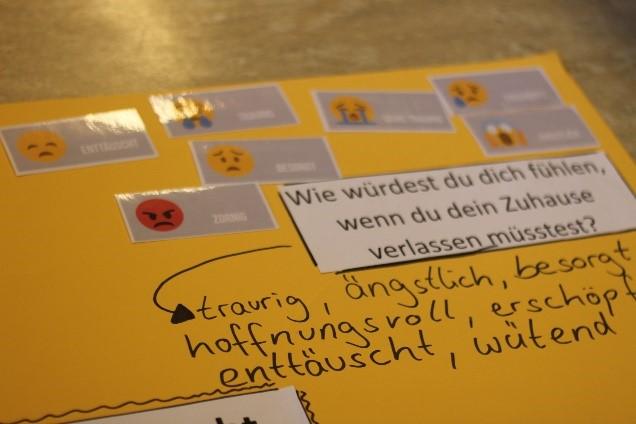 ENTTÄUSCHT
TRAURIG
BESORGT
ZORNIG
Wie würdest du dich fühlen,
wenn du dein Zuhause
verlassen müsstest?
traurig, ängstlich, besorgt
hoffnungsvoll, erschöpf
enttäuscht, wütend